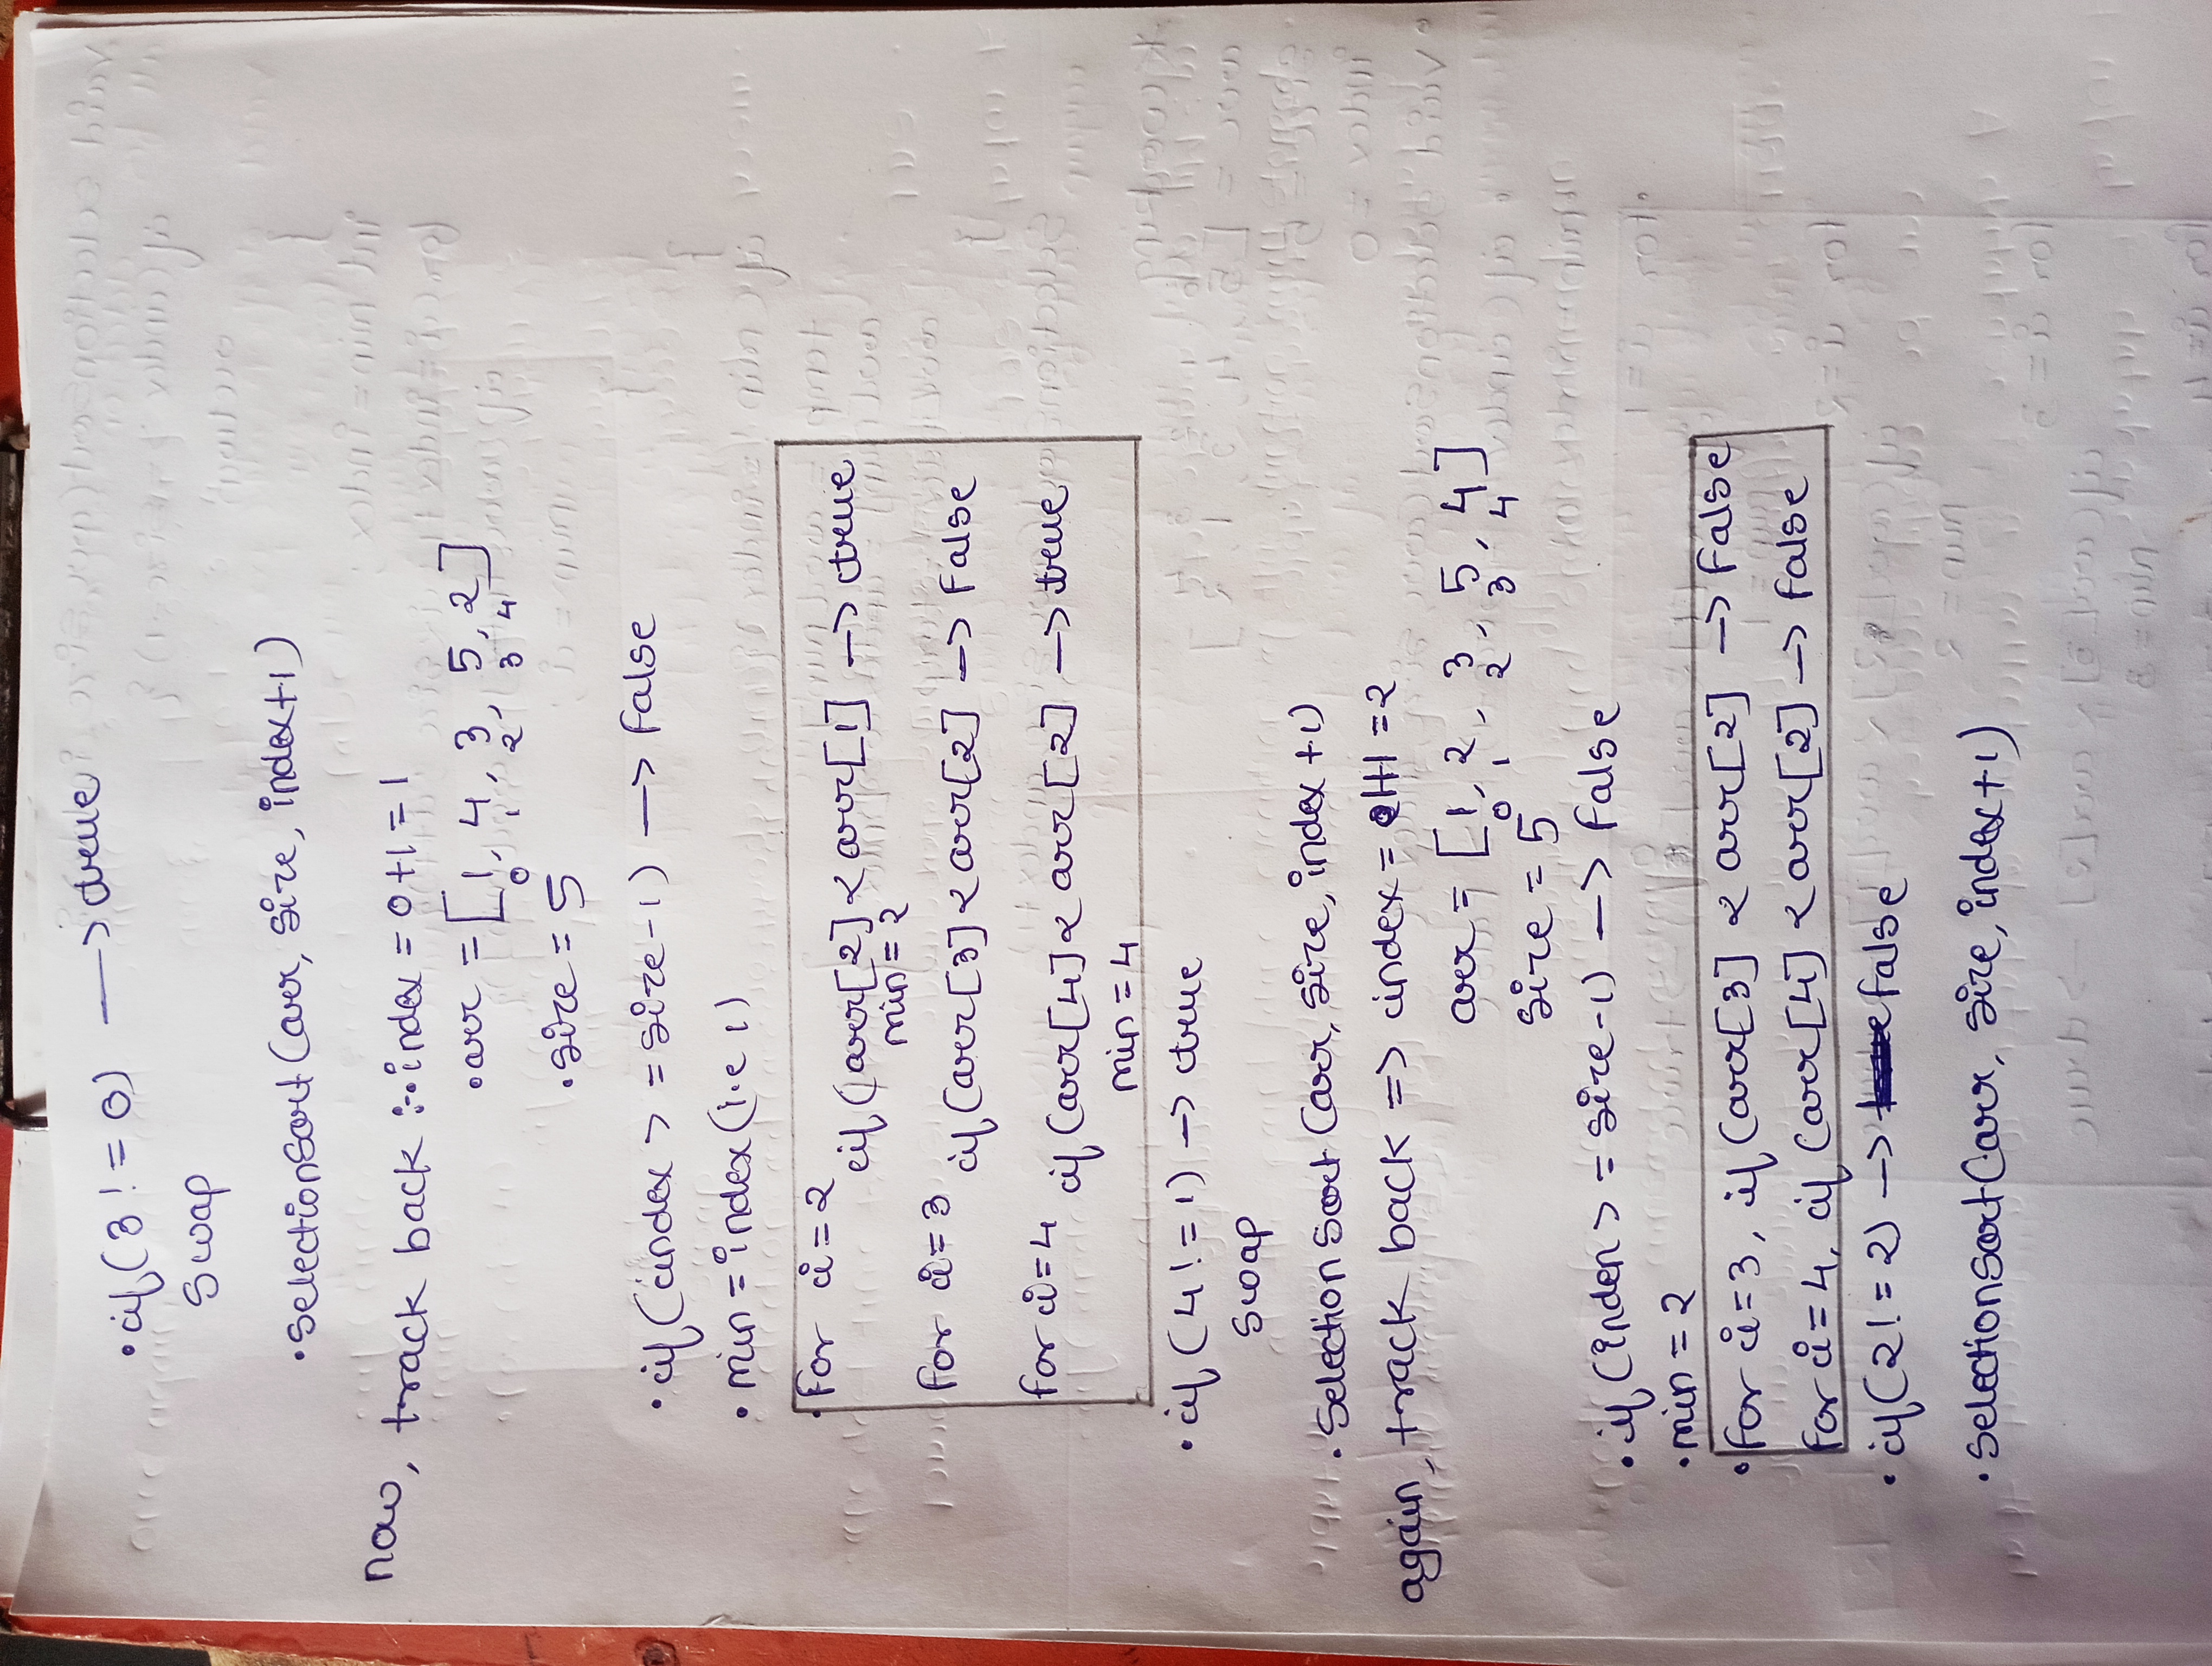 • if (3 != 0) —> true
Swap
• SelectionSort (arr, size, index+1)
now, track back :- • index = 0+1 = 1
• arr = [1, 4, 3, 5, 2]
0 1 2 3 4
• size = 5
• if (index > = size-1) —> False
• min = index (i.e 1)
• For i=2
if (arr[2] < arr[1] —> true
min = 2
For i=3
if (arr[3] < arr[2] —> False
For i=4
if (arr[4] < arr[2] —> true
min = 4
• if (4 != 1) —> true
Swap
• Selection Sort (arr, size, index +1)
again, track back => index = 1+1 = 2
arr = [1, 2, 3, 5, 4]
0 1 2 3 4
size = 5
• if (inden > = size-1) —> False
• min = 2
• For i=3, if (arr[3] < arr[2] —> False
For i=4, if (arr[4] < arr[2] —> False
• if (2 != 2) —> False
• SelectionSort (arr, size, index+1)